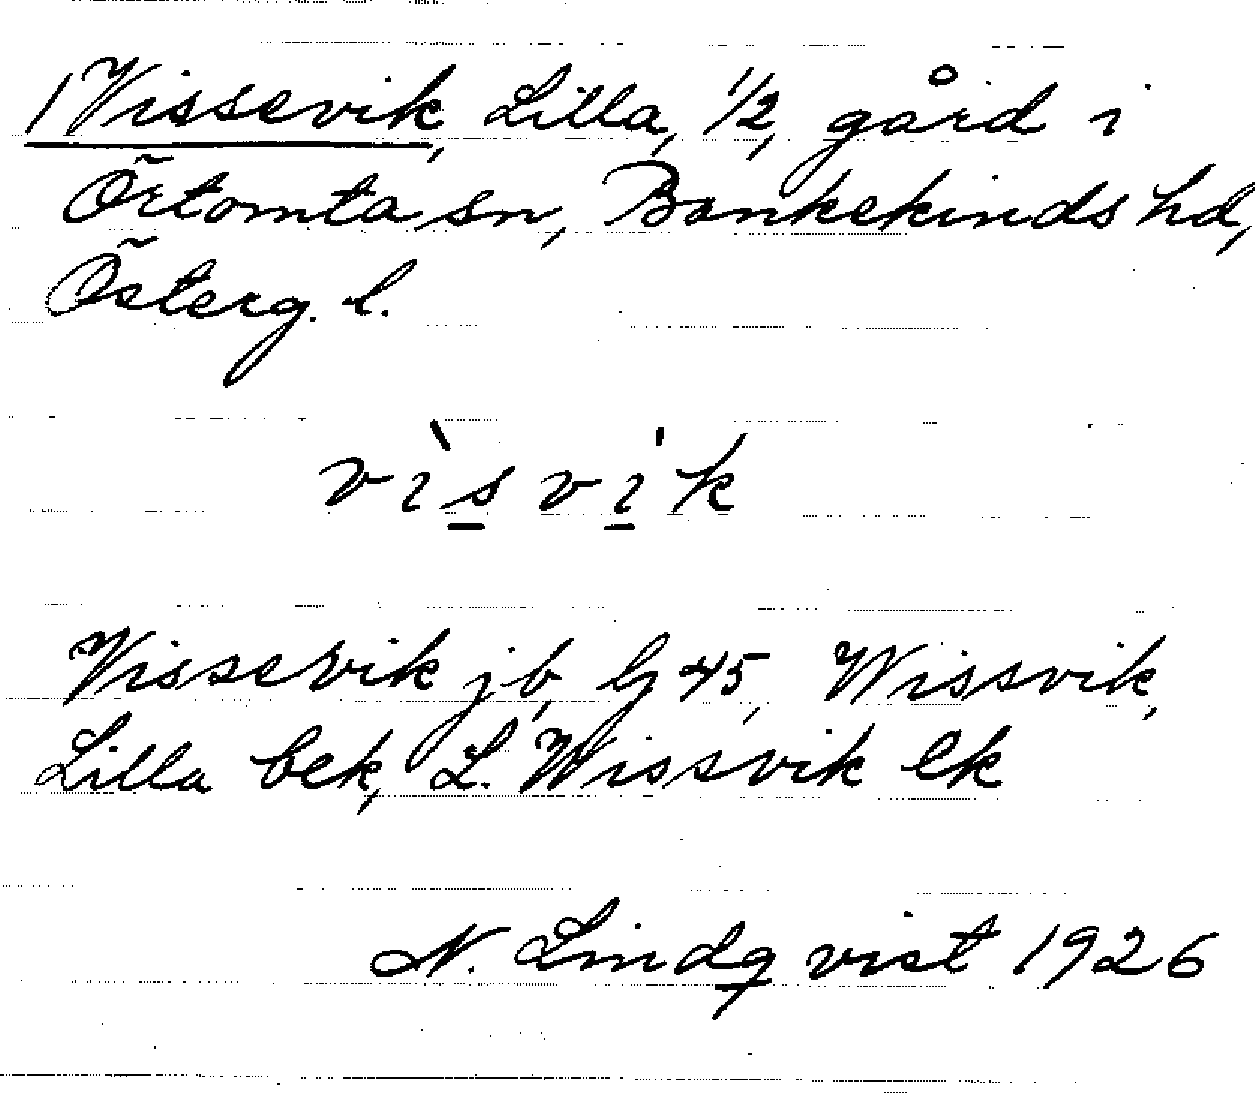 /Vissevik, Lilla, 1/2, gård i
Örtomta sn, Bankekinds hd,
Österg. l.
vìsvik
Vissevik jb, lj 45, Wissvik,
Lilla bek, L. Wissvik ek
N. Lindqvist 1926